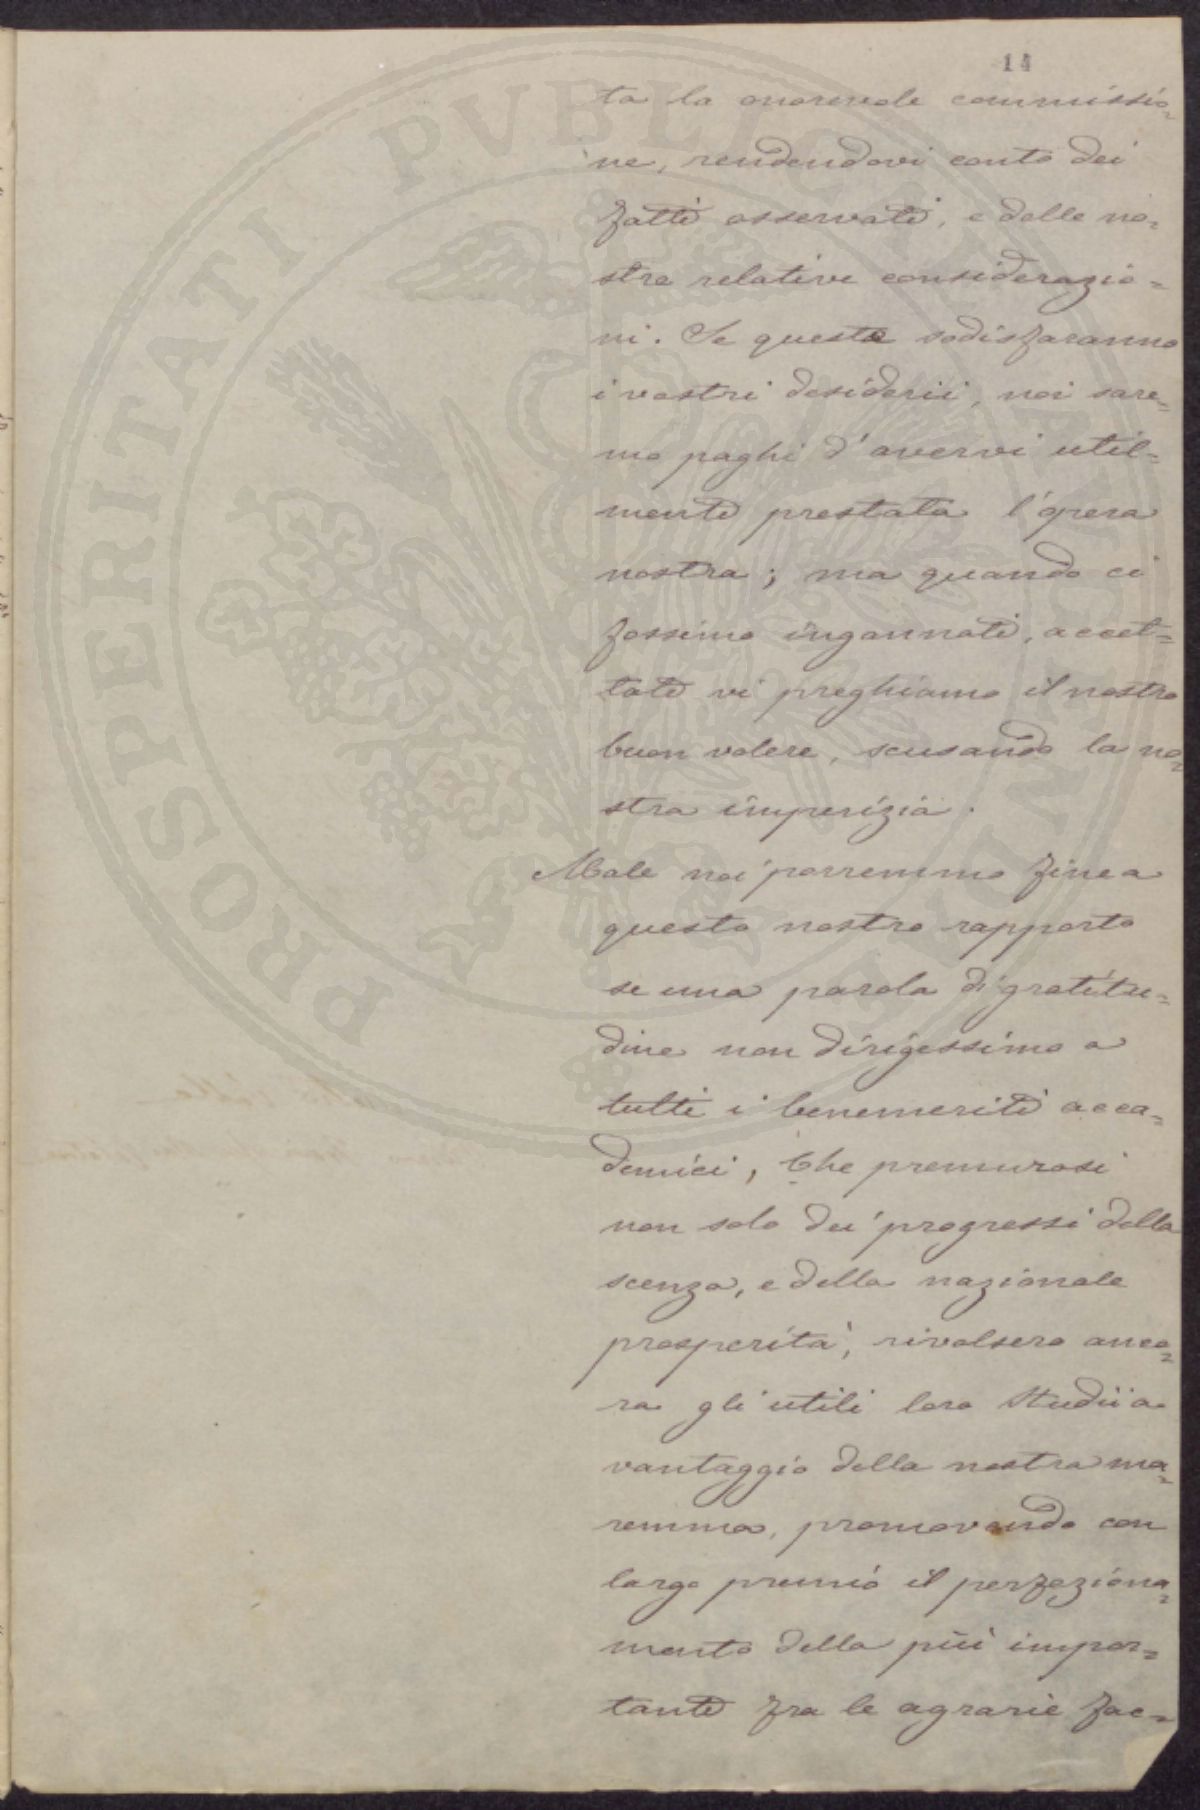 14
ta la onorevole commissio=
ne, rendendovi conto dei
fatti osservati, e delle no=
stre relative considerazio=
ni. Se queste sodisfaranno
i vostri desiderii, noi sare=
mo paghi d'avervi util=
mente prestata l'opera
nostra; ma quando ci
fossimo ingannati, accet=
tate vi preghiamo il nostro
buon volere, scusando la no=
stra imperizia.
Male noi porremmo fine a
questo nostro rapporto
se una parola di gratitu=
dine non dirigessimo a
tutti i benemeriti acca=
demici, che premurosi
non solo dei progressi della
scenza, e della nazionale
prosperità, rivolsero anco=
ra gli utili loro studii a
vantaggio della nostra ma=
remma, promovendo con
largo premio il perfeziona=
mento della più impor=
tante fra le agrarie fac=
PROSPERITATI PVBLICAE